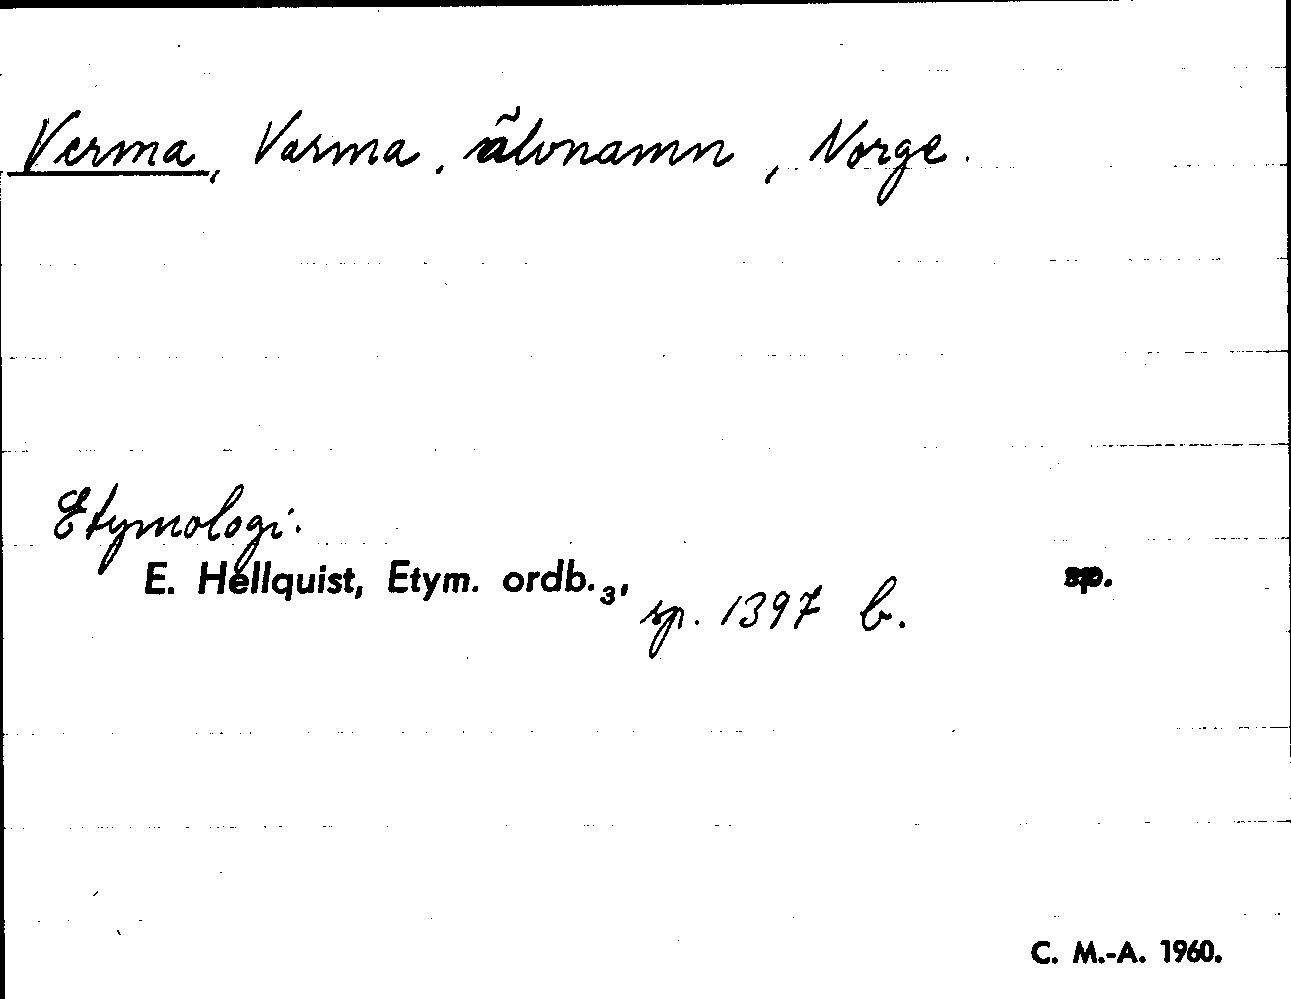 Verma, Varma, älvnamn, Norge.
Etymologi.
E. Hellquist, Etym. ordb.₃, sp. 1397 b. sp.
C. M.-A. 1960.